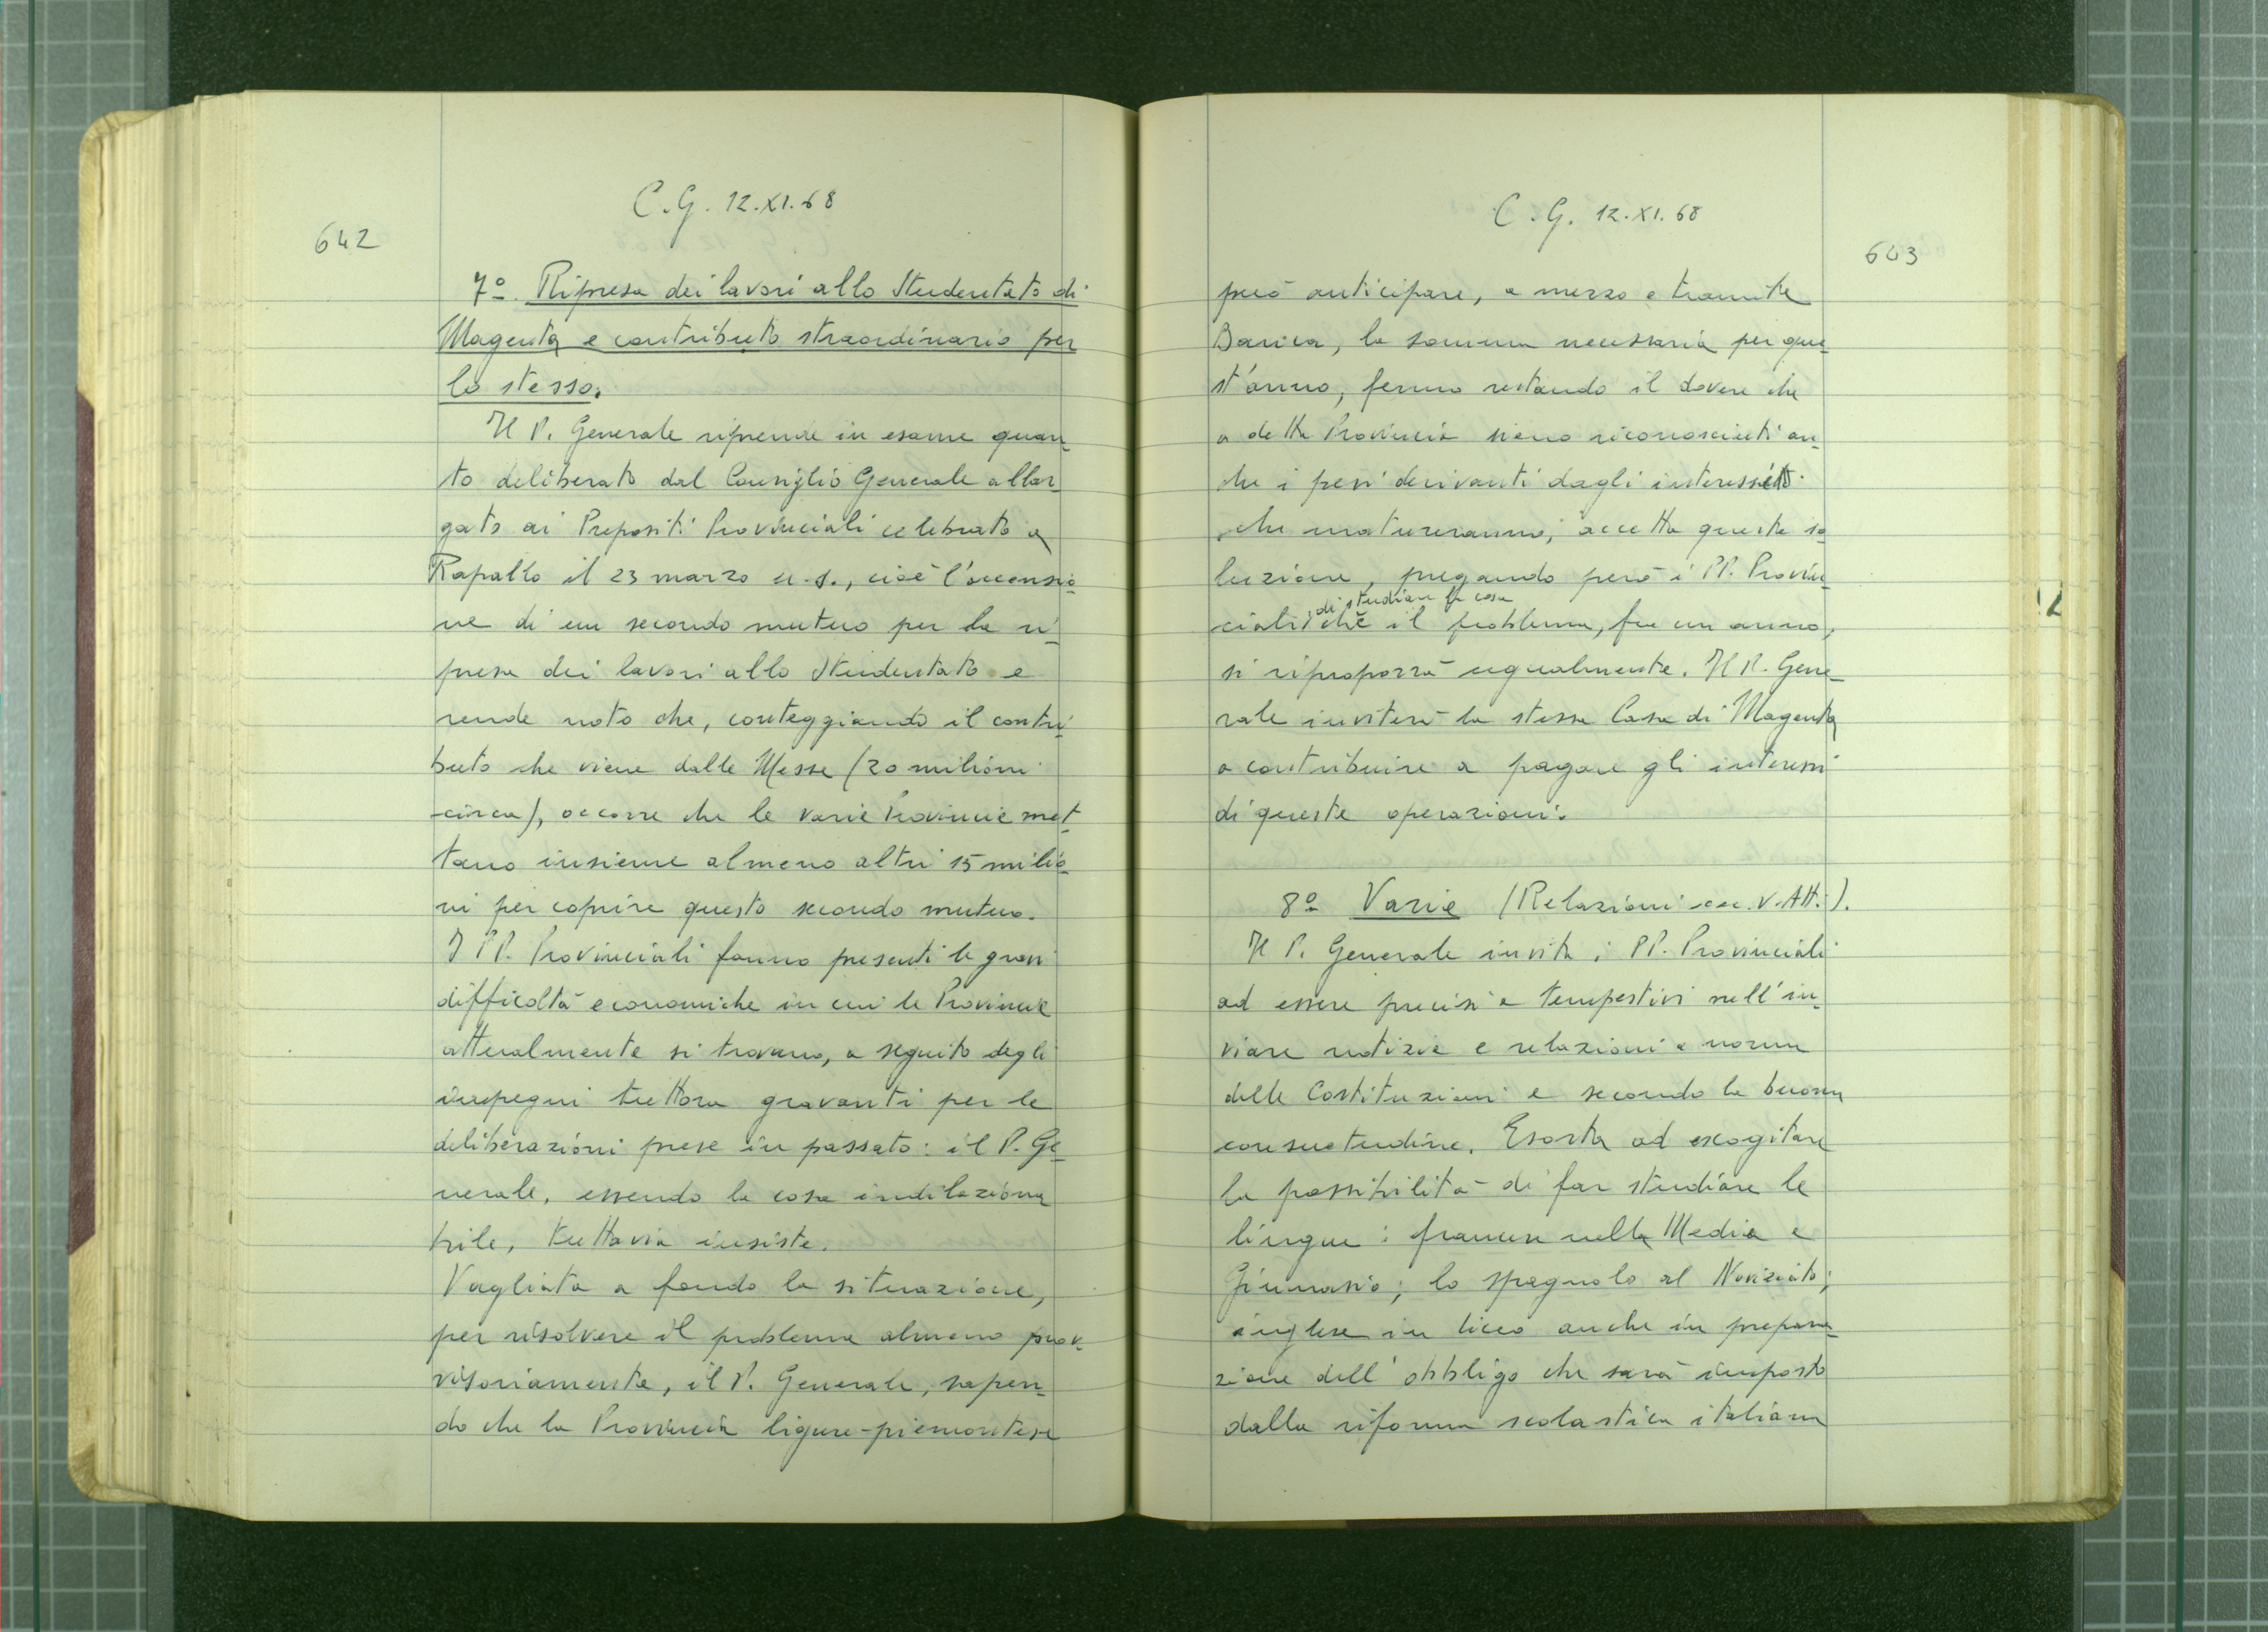 C.G. 12.XI.68
642
7º. Ripresa dei lavori allo Studentato di
Magenta e contributo straordinario per
lo stesso.
Il P. Generale riprende in esame quan
to deliberato dal Consiglio Generale allar
gato ai Prepositi Provinciali celebrato a
Rapallo il 23 marzo u.s., cioè l'accensio
ne di un secondo mutuo per la ri
presa dei lavori allo Studentato e
rende noto che, conteggiando il contri
buto che viene dalle Messe (20 milioni
circa), occorre che le varie Provincie met
tano insieme almeno altri 15 milio
ni per coprire questo secondo mutuo.
I PP. Provinciali fanno presenti le gravi
difficoltà economiche in cui le Provincie
attualmente si trovano, a seguito degli
impegni tuttora gravanti per le
deliberazioni prese in passato: il P. Ge
nerale, essendo la cosa indilaziona
bile, tuttavia insiste.
Vagliata a fondo la situazione,
per risolvere il problema almeno prov
visoriamente, il P. Generale, sapen
do che la Provincia ligure-piemontese
C.G. 12.XI.68
643
può anticipare, a mezzo e tramite
Banca, la somma necessaria per que
st'anno, fermo restando il dovere che
a detta Provincia siano riconosciuti an
che i pesi derivanti dagli interessi
che matureranno, accetta questa so
luzione, pregando però i PP. Provin
di studiare la cosa
ciali chè il problema, fra un anno,
si riproporrà ugualmente. Il P. Gene
rale inviterà la stessa Casa di Magenta
a contribuire a pagare gli interessi
di queste operazioni.
8º Varie (Relazioni ecc. V. Atti).
Il P. Generale invita i PP. Provinciali
ad essere precisi e tempestivi nell'in
viare notizie e relazioni a norma
delle Costituzioni e secondo la buona
consuetudine. Esorta ad escogitare
la possibilità di far studiare le
lingue: francese nella Media e
Ginnasio; lo spagnolo al Noviziato;
inglese in liceo anche in prepara
zione dell'obbligo che sarà imposto
dalla riforma scolastica italiana